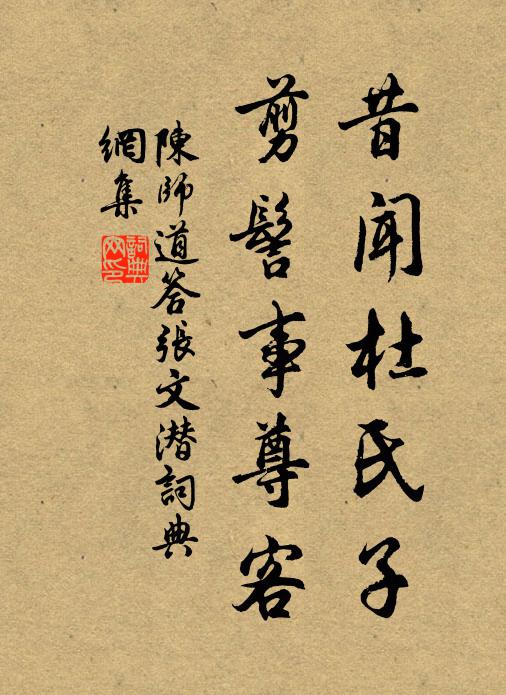 昔聞杜氏子
剪髻事尊客
陳師道答張文潜詞典
網集
詞典網印